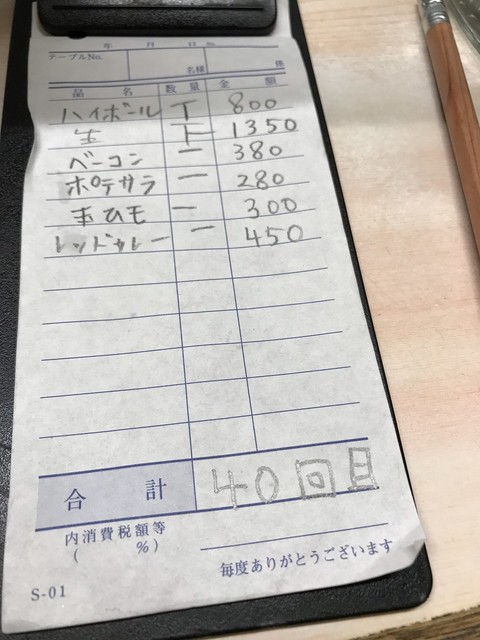 年 月 日 No.
テーブルNo. 名様 係
品 名 数 量 金 額
ハイボール T 800
生 下 1350
ベーコン 一 380
ポテサラ 一 280
玉ひも 一 300
レッドカレー 一 450
合 計 40回目
内消費税額等
( %)
毎度ありがとうございます
S-01